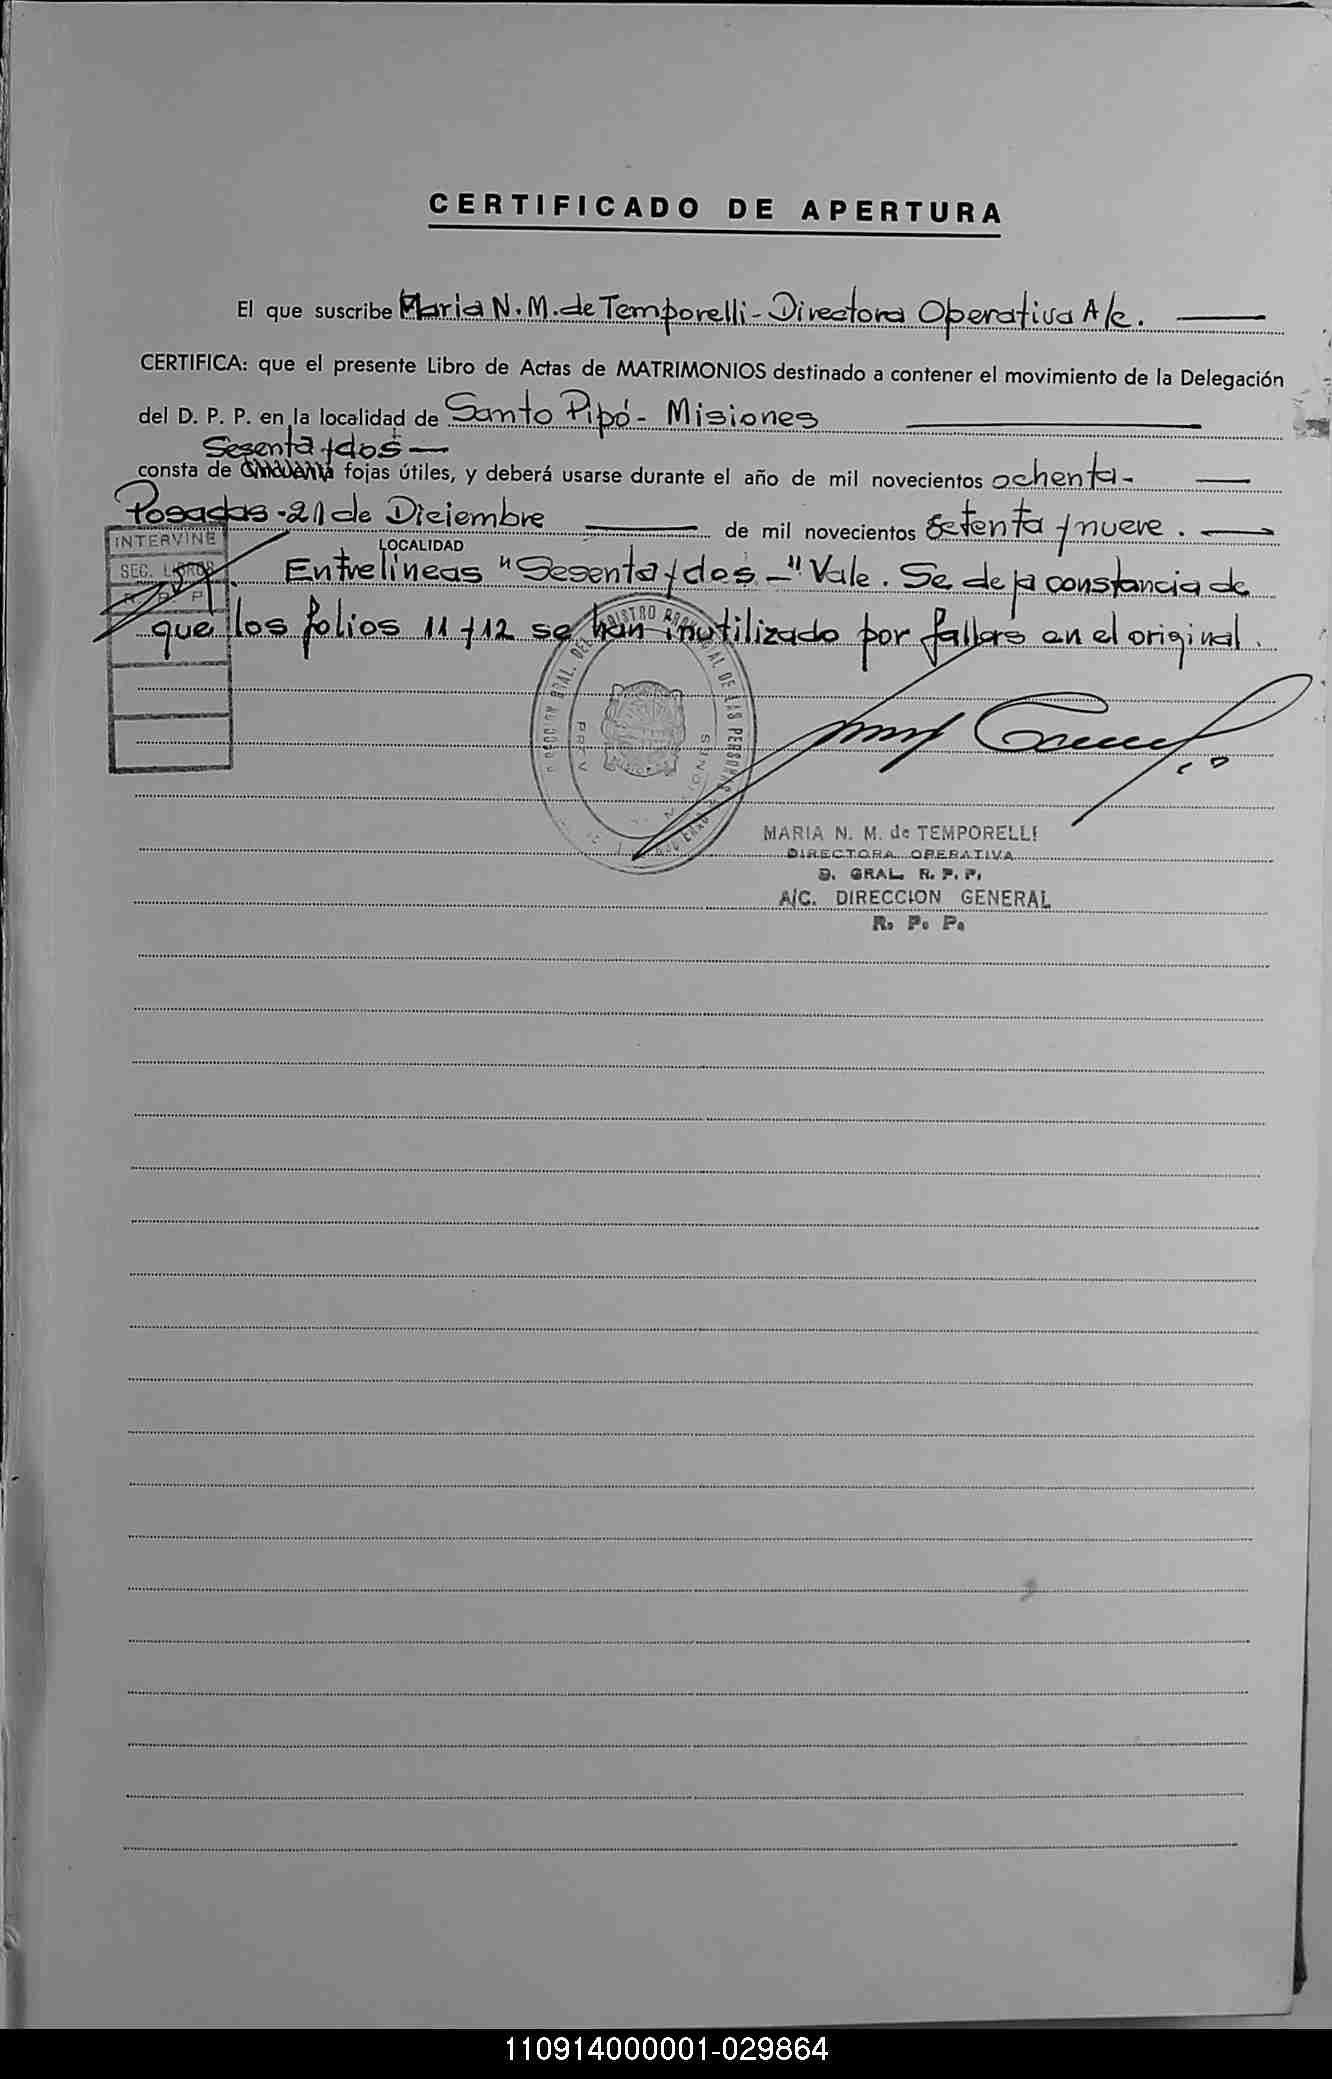 CERTIFICADO DE APERTURA
El que suscribe Maria N. M. de Temporelli - Directora Operativa A/c.
CERTIFICA: que el presente Libro de Actas de MATRIMONIOS destinado a contener el movimiento de la Delegación
del D. P. P. en la localidad de Santo Pipó - Misiones
Sesenta y dos —
consta de fojas útiles, y deberá usarse durante el año de mil novecientos ochenta -
Posadas - 21 de Diciembre de mil novecientos setenta y nueve.
LOCALIDAD
INTERVINE
SEC. LIBROS
R. P. P.
Entrelíneas "Sesenta y dos -" Vale. Se deja constancia de
que los folios 11 y 12 se han inutilizado por fallas en el original.
MISIONES
MARIA N. M. de TEMPORELLI
DIRECTORA OPERATIVA
D. GRAL. R. P. P.
A/C. DIRECCION GENERAL
R. P. P.
110914000001-029864